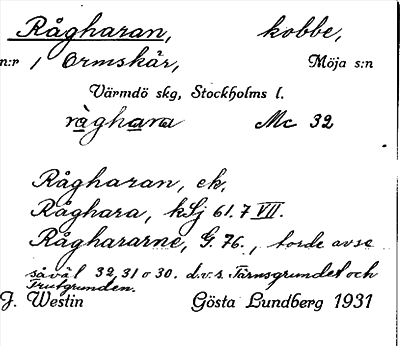 Rågharan, kobbe,
n:r 1 Ormskär, Möja s:n
Värmdö skg, Stockholms l.
ràghara Mc 32
Rågharan, ek,
Råghara, kSj 61. 7 VII.
Råghararne, G. 76., torde avse
såväl 32, 31 o 30. d.v.s. Tärnsgrundet och
Frutgrunden.
J. Westin Gösta Lundberg 1931